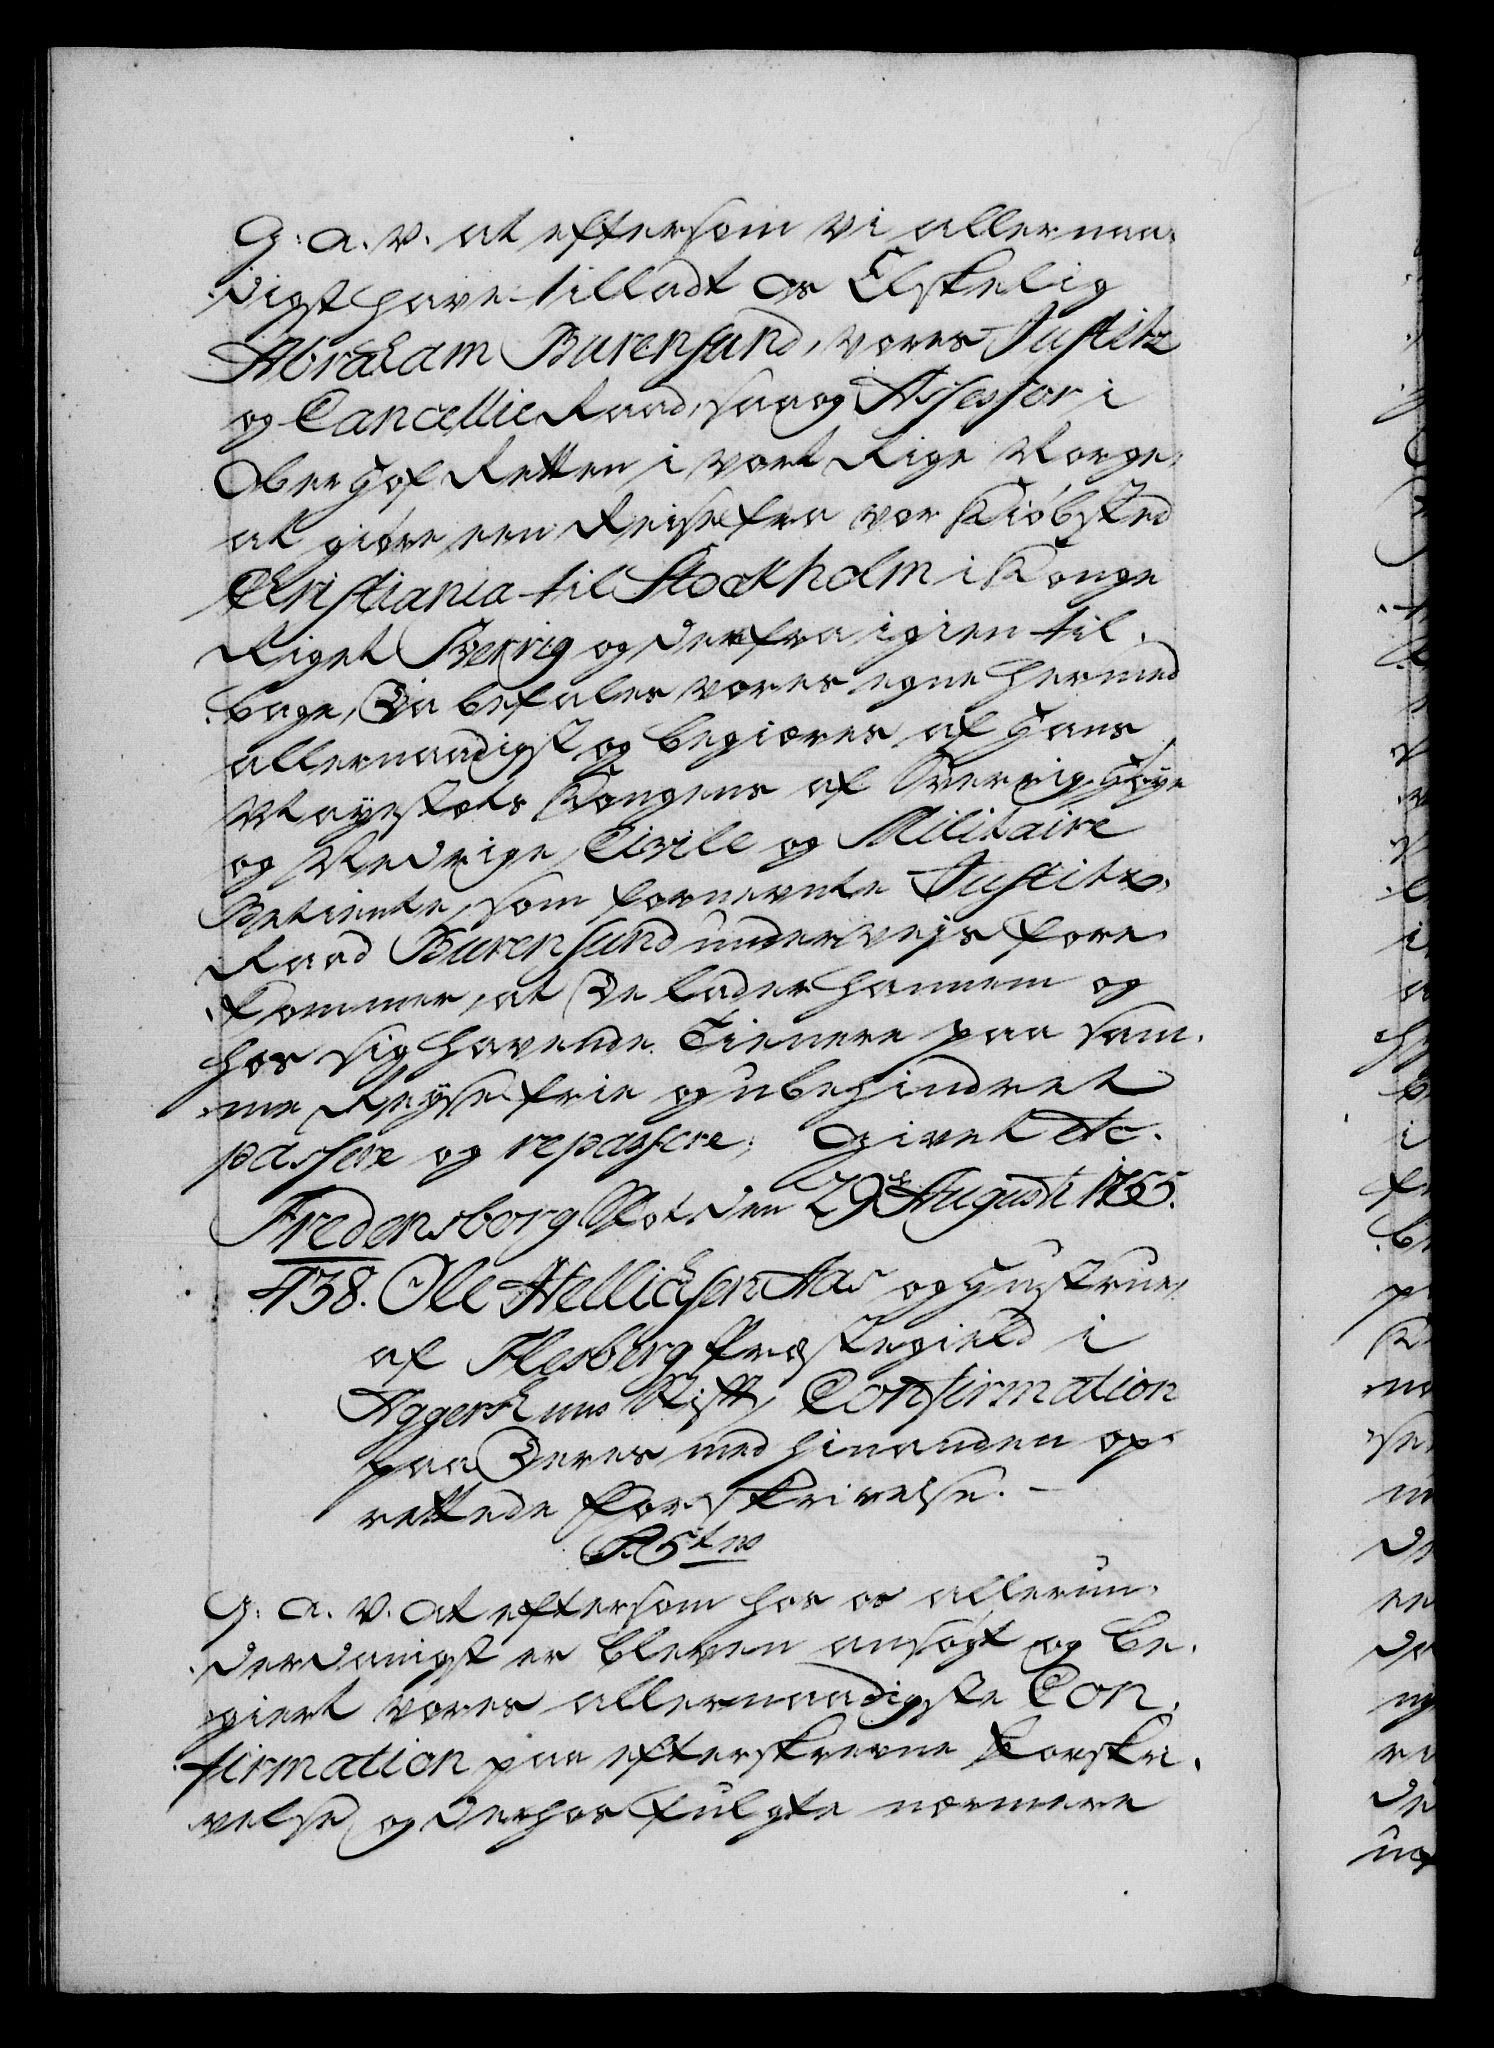 G: a. v. at eftersom vi allernaa-
digst have tilladt os Elskelig
Abraham Burensund, vores Justitz
og Cancellie Raad, saa og Assessor i
Ober Hof Retten i vort Rige Norge,
at giøre een Reise fra vor Kiøbsted
Christiania til Stockholm i Konge
Riget Sverrig og derfra igien til-
bage, Da befales vores egne hermed
allernaadigst og begiæres af Hans
Mayestæts Kongens af Sverrig Høye
og Nedrige, Civile og Militaire
Betiente, som fornevnte Justitz-
Raad Burensund underveys fore-
kommer, at De lader hannem og
hos sig havende Tienere paa sam-
me Reyse frie og ubehindret
passere og repassere; Givet etc.
Fredensborg Slot den 29de Augusti 1765.
438. Ole Hellichsen Aas og Hustrue
af Flesberg Præstegield i
Aggershuus Stift, Confirmation
paa Deres med hinanden op-
rettede Forskrivelse. -
G: a. v. at eftersom hos os allerun-
derdanigst er bleven ansøgt og be-
giert vores allernaadigste Con-
firmation paa efterskrevne Forskri-
velse, og derhos fulgte nærmere